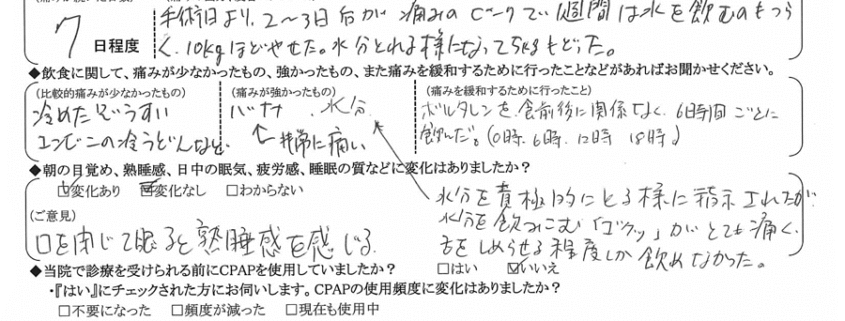 7 日程度
手術日より、2〜3日后が痛みのピークで1週間は水を飲むのもつら
く、10kgほどやせた。水分とれる様になって5kgもどった。
◆飲食に関して、痛みが少なかったもの、強かったもの、また痛みを緩和するために行ったことなどがあればお聞かせください。
(比較的痛みが少なかったもの)
冷めたぞうすい
コンビニの冷うどんなど
(痛みが強かったもの)
バナナ、水分
← 非常に痛い
(痛みを緩和するために行ったこと)
ボルタレンを食前後に関係なく、6時間ごとに
飲んだ。(0時、6時、12時 18時)
◆朝の目覚め、熟睡感、日中の眠気、疲労感、睡眠の質などに変化はありましたか?
☑変化あり ☑変化なし □わからない
(ご意見)
口を閉じて眠ると熟睡感を感じる
水分を積極的にとる様に指示されたが
水分を飲みこむ「ゴクッ」がとても痛く、
舌をしめらせる程度しか飲めなかった。
◆当院で診療を受けられる前にCPAPを使用していましたか? □はい ☑いいえ
・『はい』にチェックされた方にお伺いします。CPAPの使用頻度に変化はありましたか?
□不要になった □頻度が減った □現在も使用中